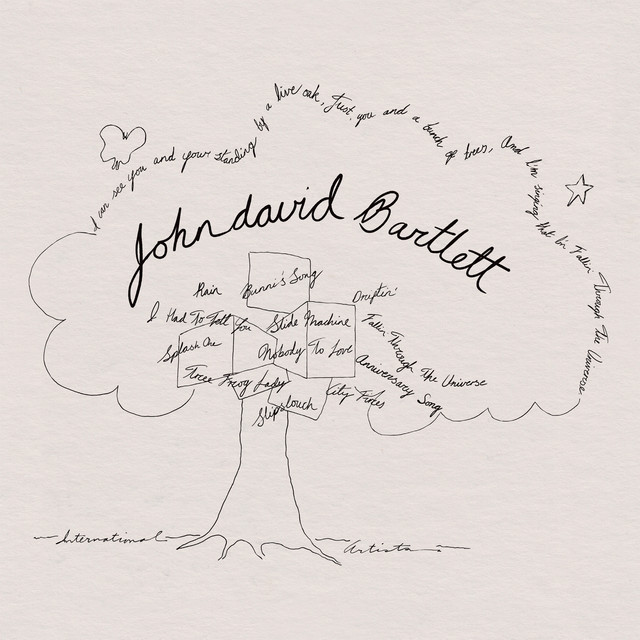 I can see you and your standing by a live oak, Just you and a bunch of trees, And I'm singing that I'm Fallin Through The Universe
Johndavid Bartlett
Rain
Bunni's Song
Driftin'
I Had To Tell You
Slide Machine
Splash One
Nobody To Love
Fallin Through The Universe
Tree Frog Lady
Anniversary Song
Slipslouch
City Pines
International
Artists